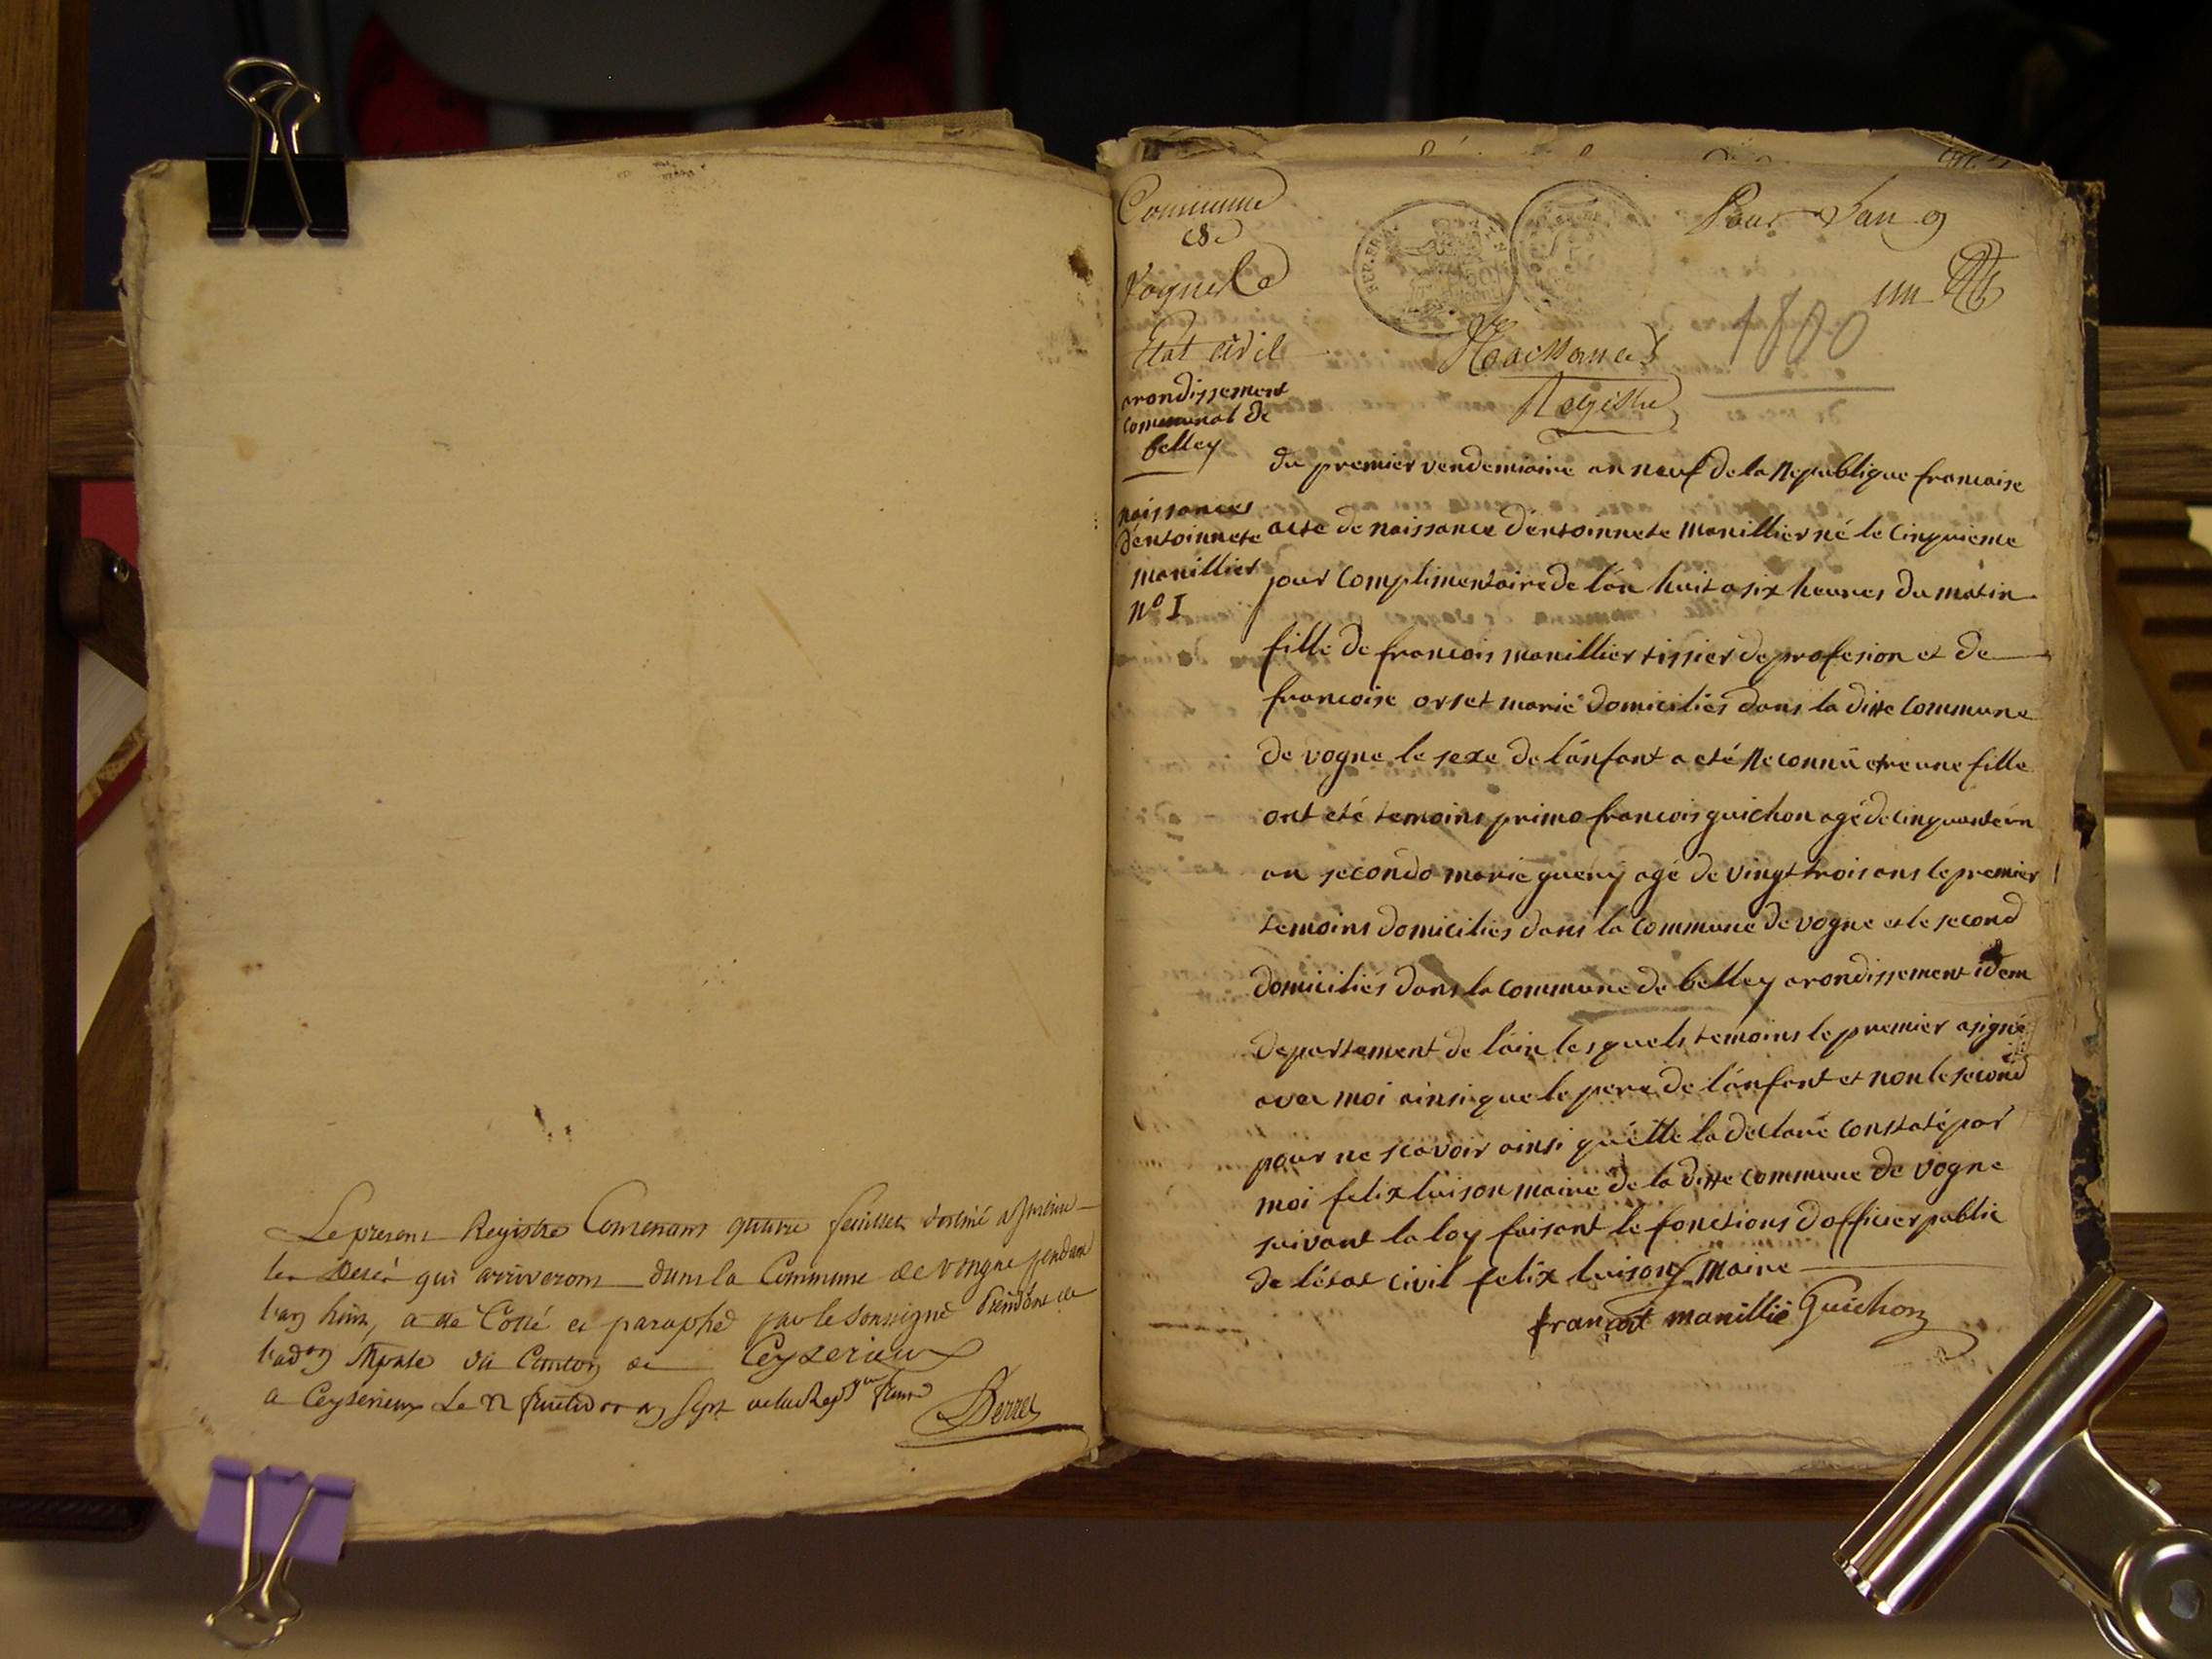 Le present Registre Contenant quatre feuillets destiné a Inscrire
les Décés qui arriveront dans la Commune de vongne pendant
l'an huit, a été Cotté et paraphé par le Soussigné Président de
l'adon Mpale du Canton de Ceyzerieux
a Ceyzerieux Le fructidor an Sept de la Repque franc
Commune
de
Vogne
Etat civil
arondissement
communal de
belley
naissances
d'entoinnete
manillier
no I
REP. FRA.
Pour L'an 9
un
1800
Naissances
Registre
du premier vendemiaire an neuf de la Republique francaise
acte de naissance d'entoinnete manillier né le cinquieme
jour complimentaire de l'an huit a six heures du matin
fille de francois manillier tissier de profesion et de
francoise orset marié domiciliés dans la ditte commune
de vogne le sexe de l'anfant a eté Reconnû etre une fille
ont eté temoins primo francois guichon agé de cinquanteun
an secondo marie gueny agé de vingt trois ans le premier
temoins domiciliés dans la commune de vogne et le second
domiciliés dans la commune de belley arondissement idem
departement de lain les quels temoins le premier a signé
avec moi ainsi que le pere de l'anfant et non le second
pour ne scavoir ainsi qu'elle la declaré constaté par
moi felix luison maire de la ditte commune de vogne
suivant la loy faisant le fonctions dofficier public
de l'état civil felix luison maire
francoit manillié Guichon